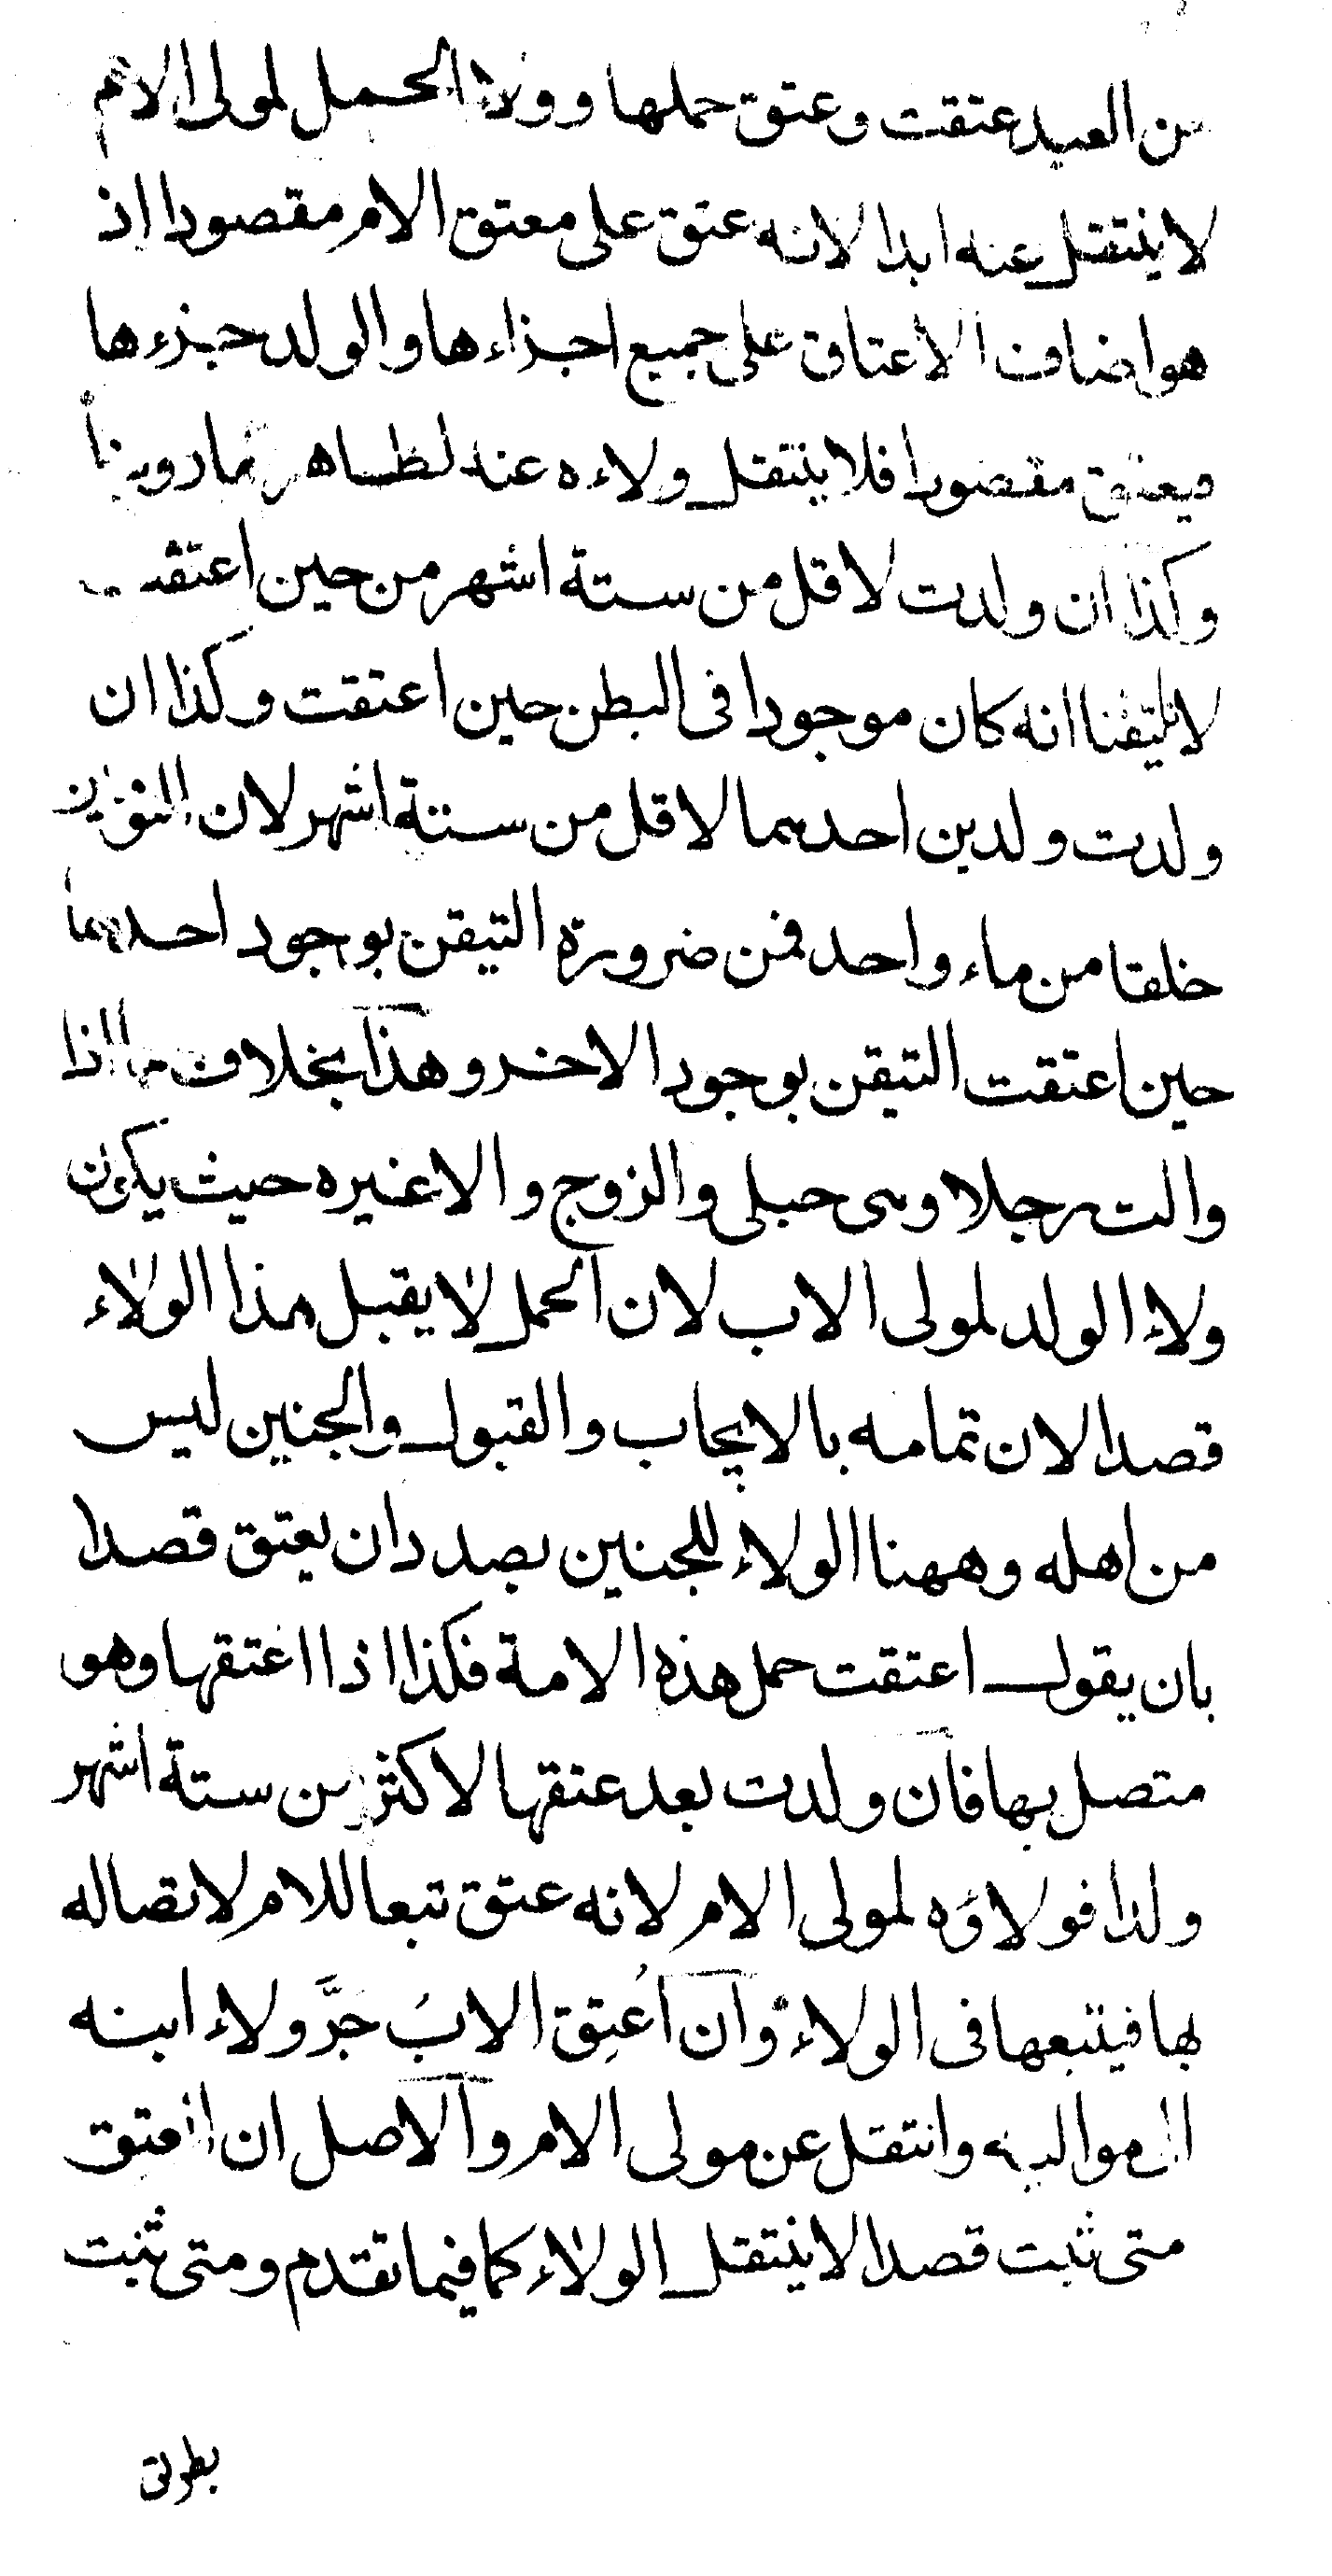 من العبد عتقت وعتق حملها وولاء الحمل لمولى الام
لا ينتقل عنه ابدا لانه عتق على معتق الام مقصودا اذ
هو اضاف الاعتاق على جميع اجزاءها والولد جزءها
فيعتق مقصودا فلا ينتقل ولاءه عنه لظاهر ما روينا
وكذا ان ولدت لاقل من ستة اشهر من حين اعتقت
لانا تيقنا انه كان موجودا فى البطن حين اعتقت وكذا ان
ولدت ولدين احدهما لاقل من ستة اشهر لان التوءمين
خلقا من ماء واحد فمن ضرورة التيقن بوجود احدهما
حين اعتقت التيقن بوجود الاخر وهذا بخلاف ما اذا
والت رجلا وهى حبلى والزوج والا غيره حيث يكون
ولاء الولد لمولى الاب لان الحمل لا يقبل هذا الولاء
قصدا لان تمامه بالايجاب والقبول والجنين ليس
من اهله وههنا الولاء للجنين بصدد ان يعتق قصدا
بان يقول اعتقت حمل هذه الامة فكذا اذا اعتقها وهو
متصل بها فان ولدت بعد عتقها لاكثر من ستة اشهر
ولدا فولاؤه لمولى الام لانه عتق تبعا للام لاتصاله
بها فيتبعها فى الولاء وان اُعتِق الابُ جَرَّ ولاء ابنه
الى مواليه وانتقل عن مولى الام والاصل ان العتق
متى ثبت قصدا لا ينتقل الولاء كما فيما تقدم ومتى ثبت
بطريق